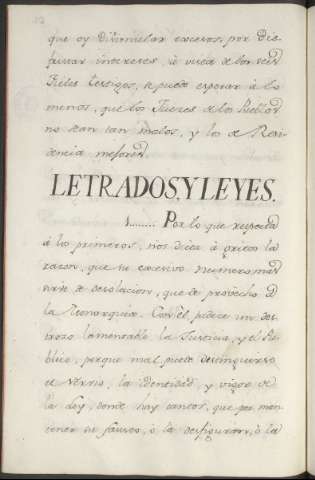 que oy Disimular excesos, por Dis-
frutar intereses, à vista de los seis
Fieles testigos, se puede esperar à lo
menos, que los Jueces de los Pueblos
no sean tan malos, y los de Resi-
dencia mejores.
LETRADOS, Y LEYES.
1....... Por lo que respecta
à los primeros, nos dicta à gritos la
razon, que su excesivo numero mas
sirve de desolacion, que de provecho à
la Monarquia. Con el, padece un des-
trozo lamentable la Justicia, y el Pu-
blico, porque mal puede distinguirse
el Nervio, la identidad, y vigor de
la Ley, donde hay tantos, que por man-
tener su fausto, ò la desfiguran, ò la